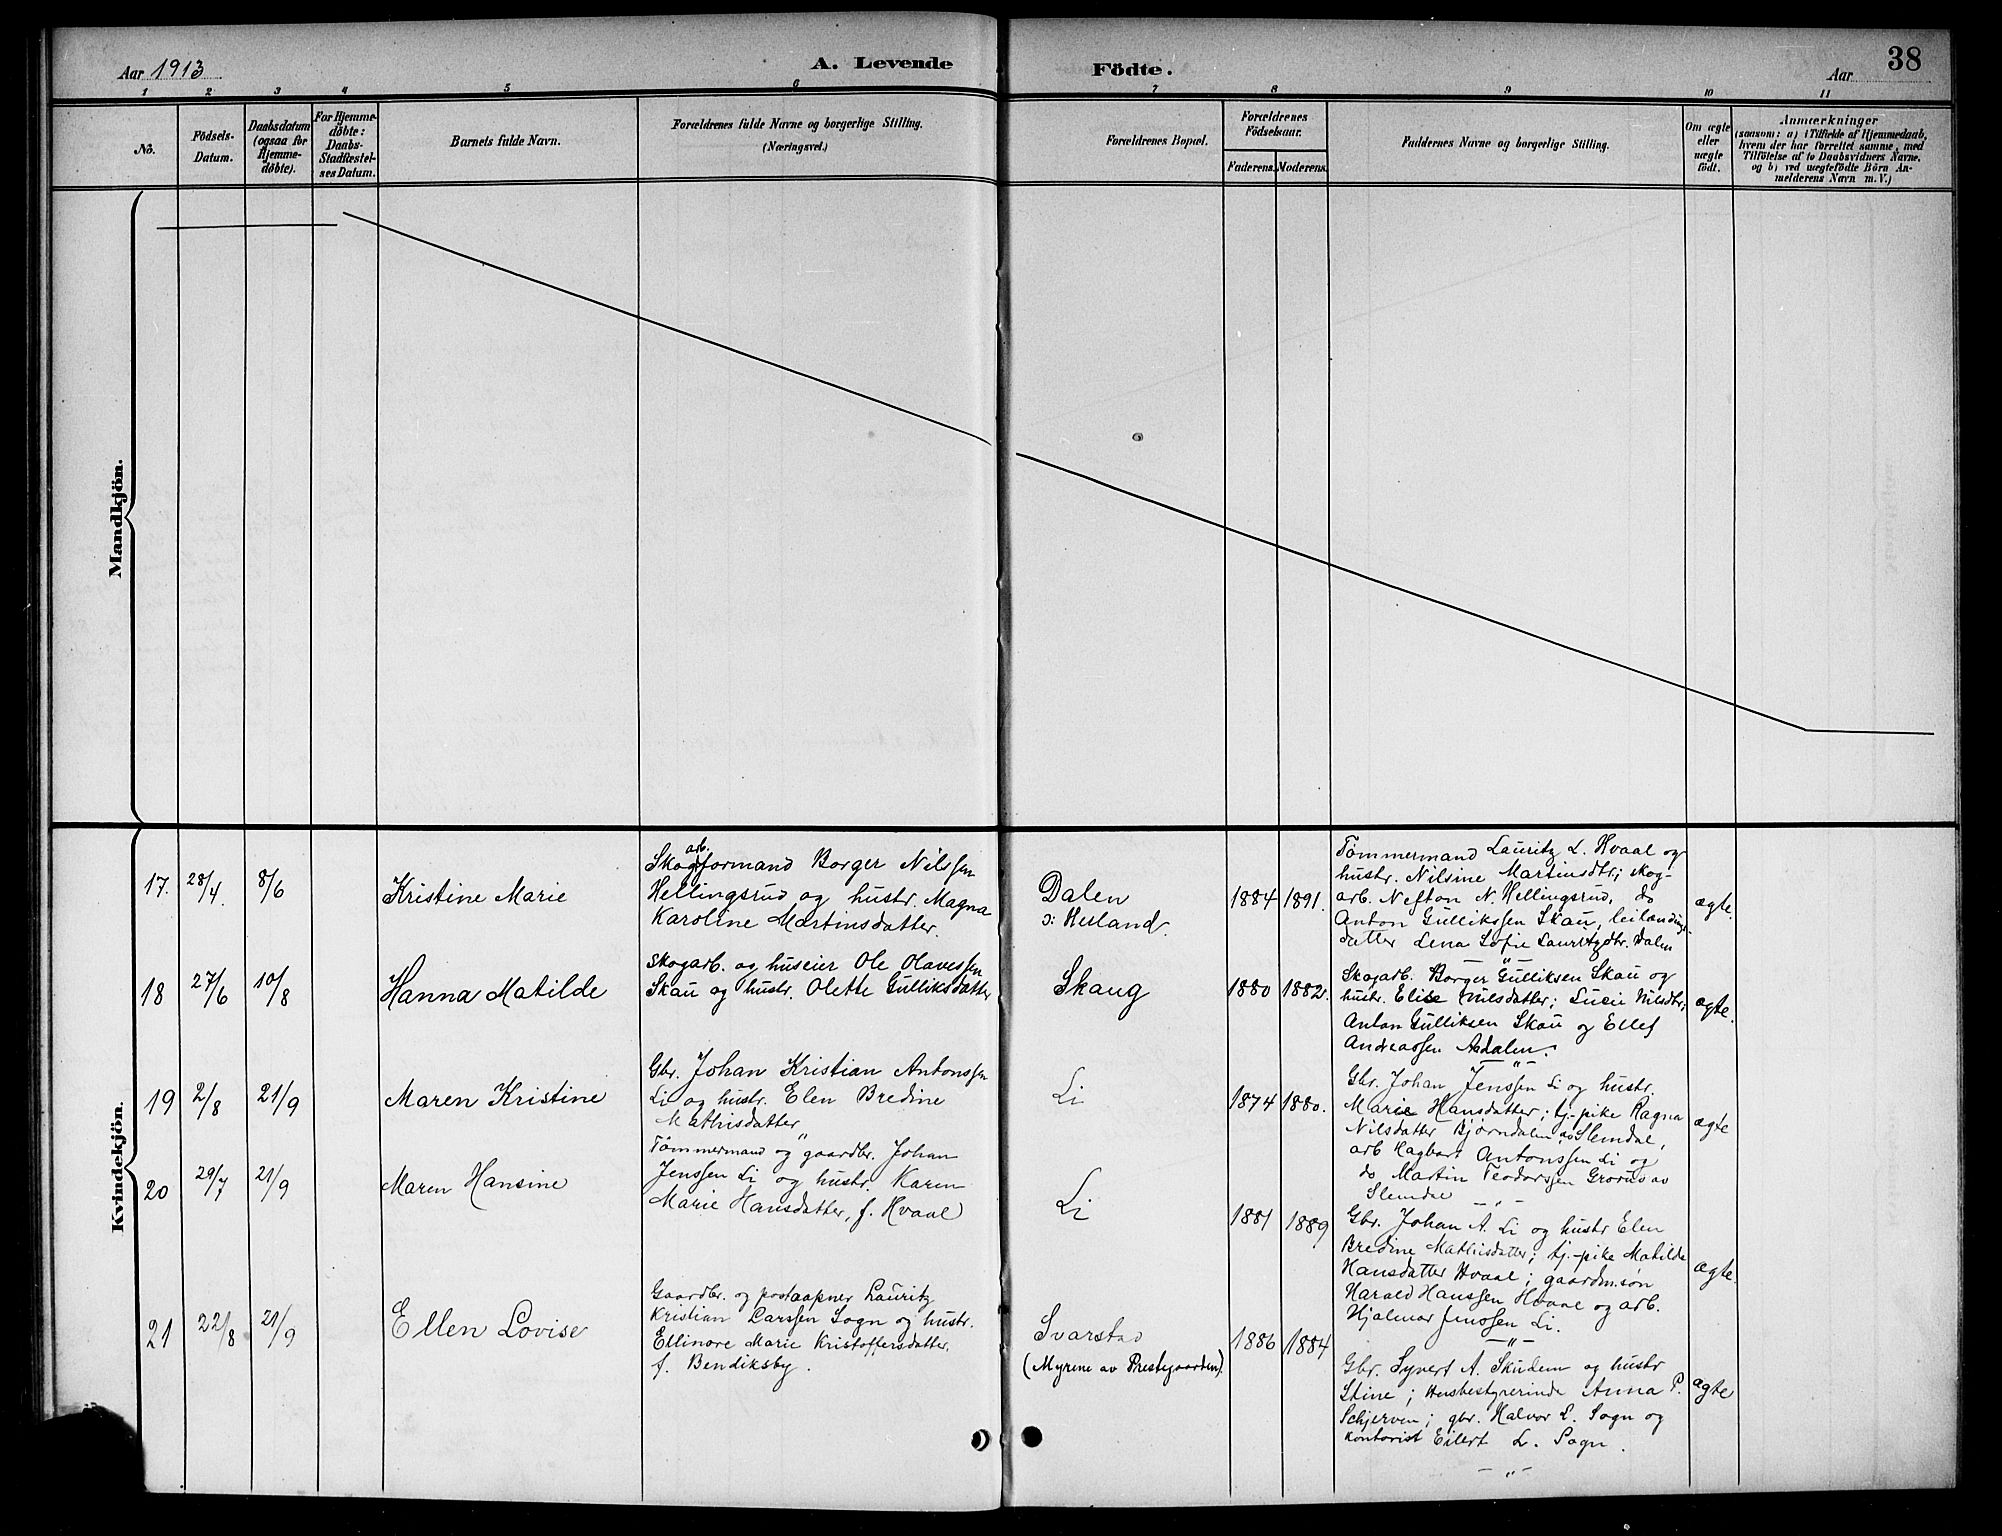 Aar 1913
A. Levende
Födte.
Aar
38
1 2 3 4 5 6 7 8 9 10 11
Nô.
Födsels-
Datum.
Daabsdatum
(ogsaa for
Hjemme-
döbte).
For Hjemme-
döbte:
Daabs-
Stadfæstel-
ses Datum.
Barnets fulde Navn.
Forældrenes fulde Navne og borgerlige Stilling.
(Næringsvei.)
Forældrenes Bopæl.
Forældrenes
Födselsaar.
Faderens.
Moderens.
Faddernes Navne og borgerlige Stilling.
Om ægte
eller
uægte
födt.
Anmærkninger
(saasom: a) i Tilfælde af Hjemmedaab,
hvem der har forrettet samme, med
Tilföielse af to Daabsvidners Navne.
og b) ved uægtefödte Börn An-
melderens Navn m. V.)
Mandkjön.
Kvindekjön.
17. 28/4. 8/6
Kristine Marie
Skogarb.formand Borger Nilssen
Hellingsrud og hustr. Magna
Karoline Martinsdatter.
Dalen
ɔ: Husland.
1884 1891.
Tömmermand Lauritz L. Hvaal og
hustr. Nilsine Martinsdtr; skog-
arb. Nefton N. Hellingsrud, do
Anton Gulliksen Skau, leilændings-
datter Lena Sofie Lauritzdtr. Dalen
—"—
ægte.
18 27/6 10/8
Hanna Matilde
Skogarb. og huseier Ole Olavessen
Skau og hustr. Olette Gulliksdatter
Skaug
1880 1882.
Skogarb. Borger Gulliksen Skau og
hustr. Elise Nilsdatter; Lucie Nilsdtr;
Anton Gulliksen Skau og Ellef
Andreassen Aadalen.
—"—
ægte.
19 2/8 21/9
Maren Kristine
Gbr. Johan Kristian Antonssen
Li og hustr. Elen Bredine
Mathisdatter
"
Li
1874 1880.
Gbr. Johan Jenssen Li og hustr.
Marie Hansdatter; tj.-pike Ragna
Nilsdatter Bjørndalen av Slemdal,
arb Hagbart Antonssen Li og
do Martin Teodorssen Grorud av
Slemdal —"—
ægte
20 29/7 21/9
Maren Hansine
Tömmermand og gaardbr. Johan
Jenssen Li og hustr. Karen
Marie Hansdatter, f. Hvaal
Li
1881 1889
Gbr. Johan A. Li og hustr Elen
Bredine Mathisdatter; tj.-pike Matilde
Hansdatter Hvaal; gaardm.søn
Harald Hanssen Hvaal og arb.
Hjalmar Jenssen Li.
—"—
ægte.
21 22/8 21/9
Ellen Lovise
Gaardbr. og postaapner Lauritz
Kristian Larssen Sogn og hustr.
Ellinore Marie Kristoffersdatter,
f. Bendiksby.
Svarstad
(Myrene av Prestegaarden)
1886 1884
Gbr. Syvert A. Skudem og hustr
Stine; Husbestyrerinde Anna P.
Schjerven; gbr. Halvor L. Sogn og
kontorist Eilert L. Sogn.
—"—
ægte